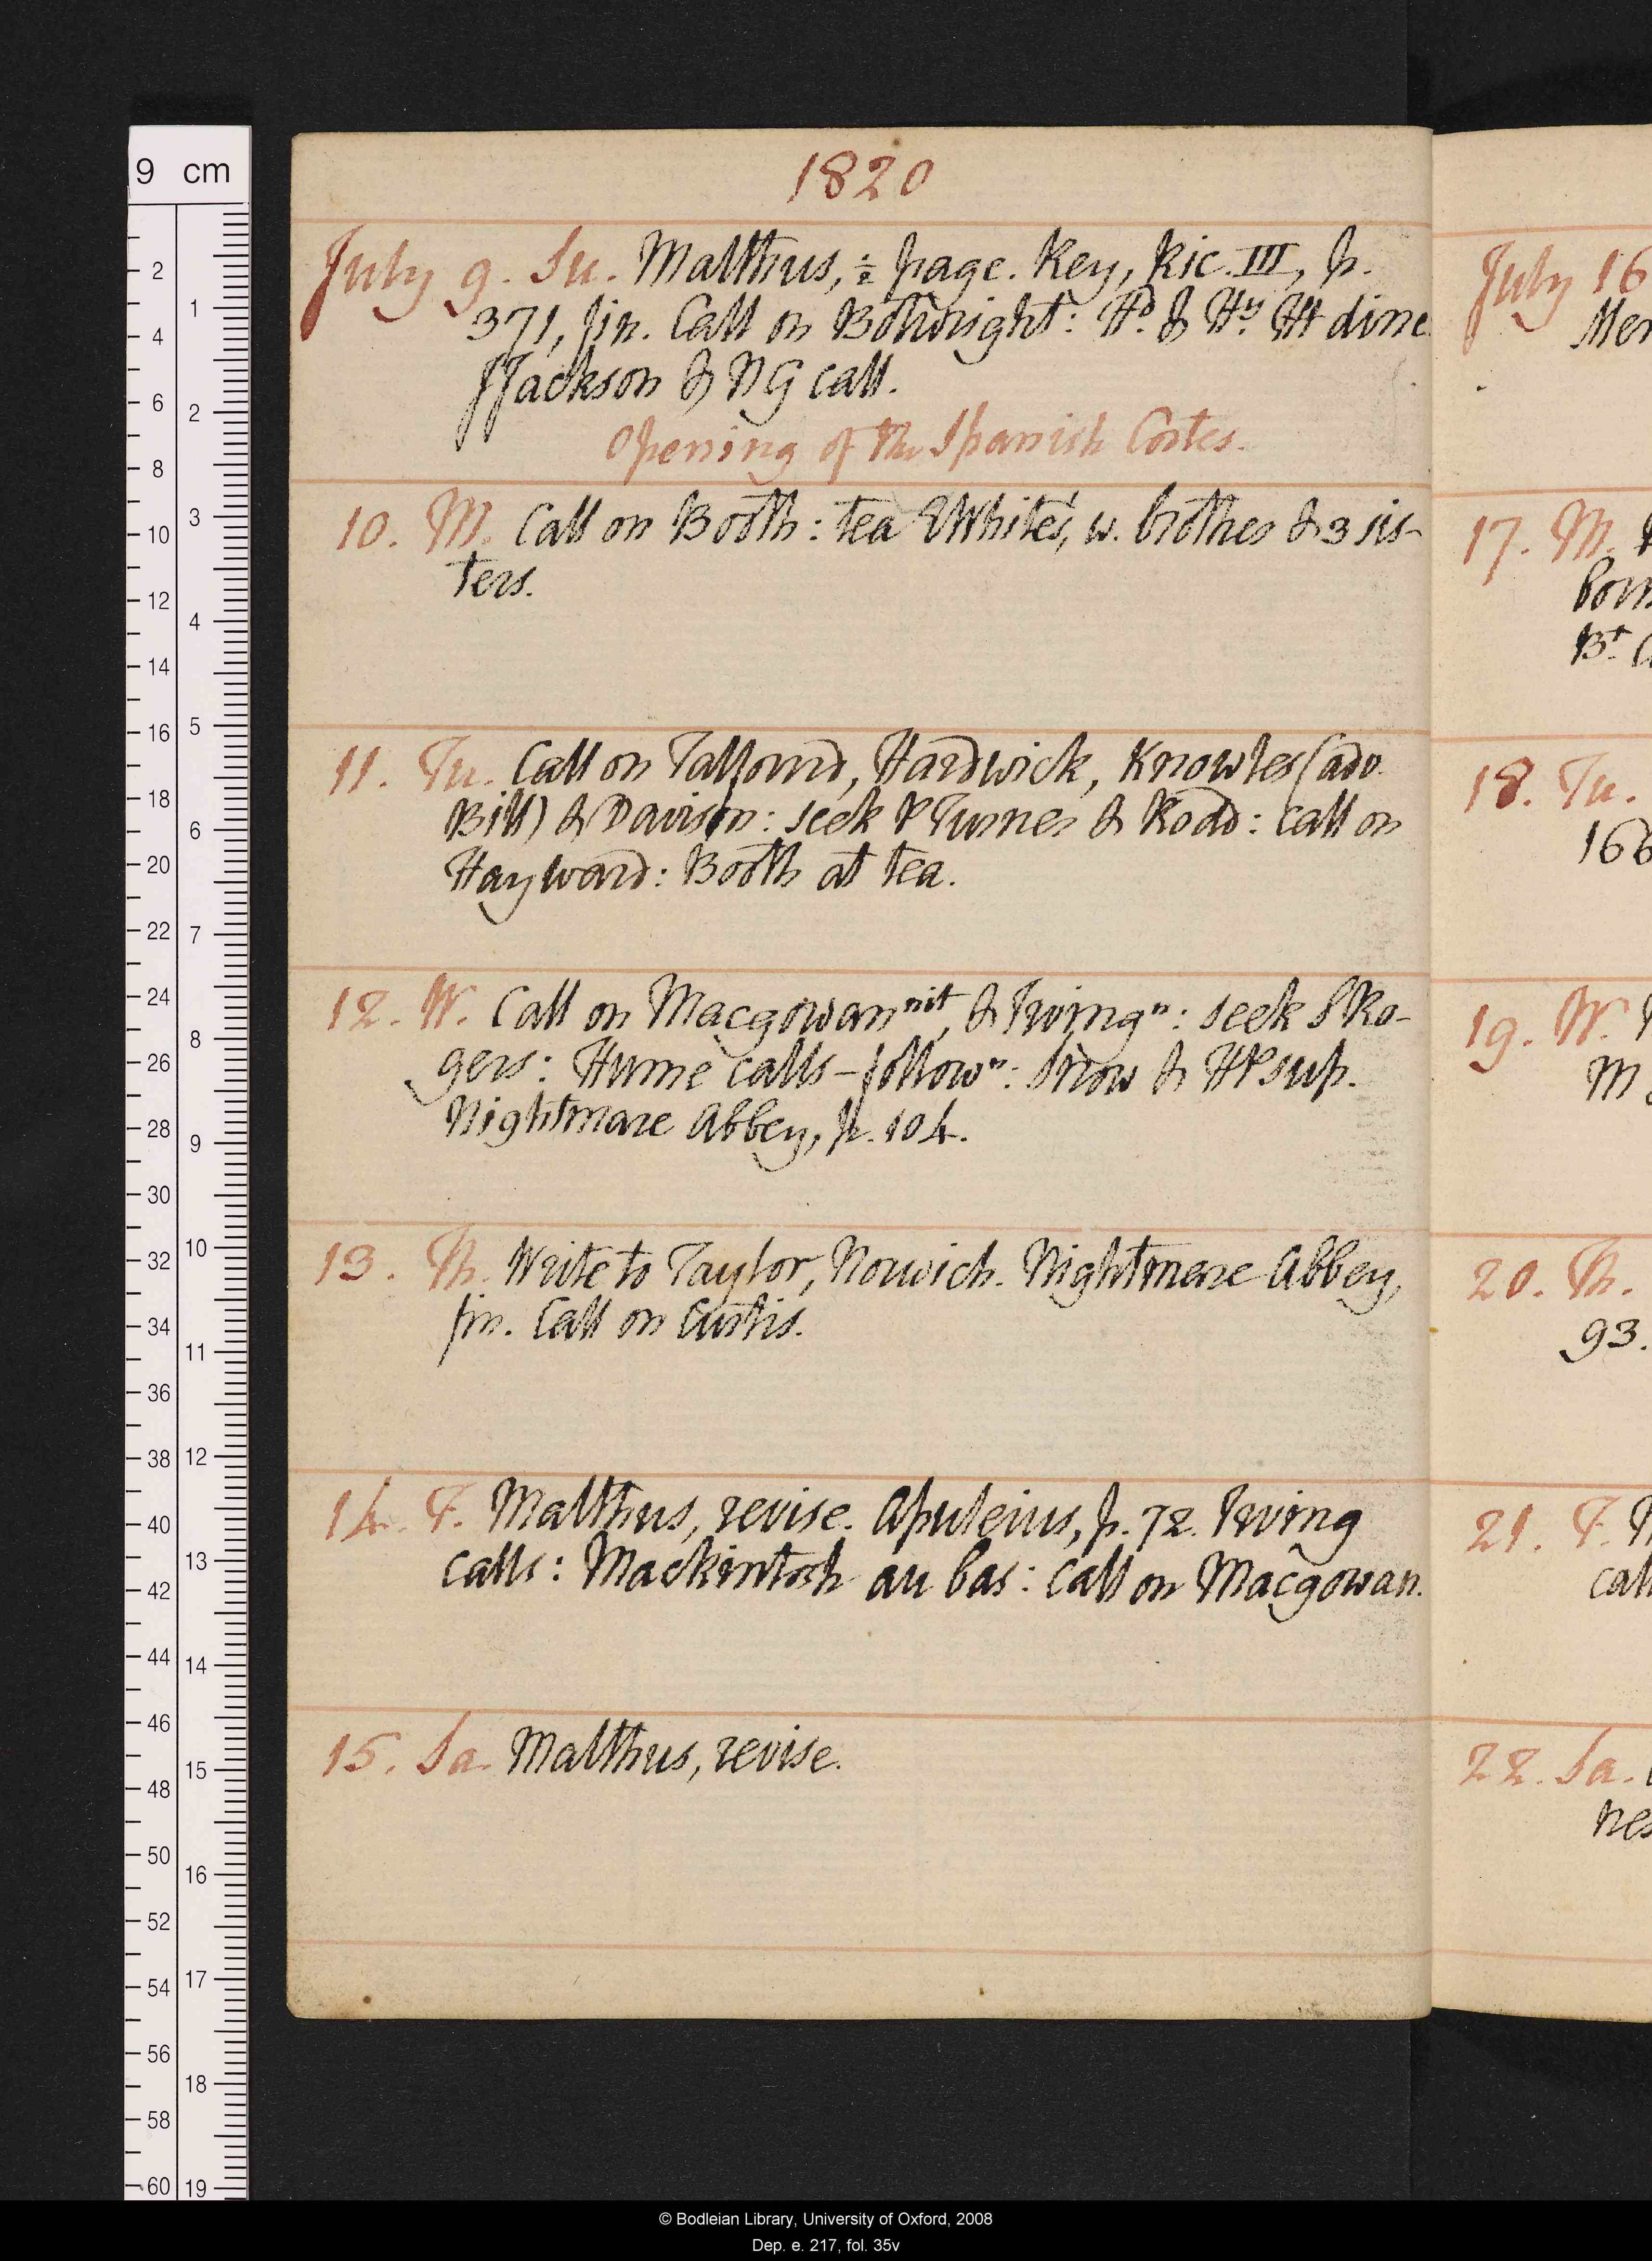 1820
July 9. Su. Malthus, ½ page. Key, Ric. III, p.
371, fin. Call on Bothwright: Hd. & Hy. Ht dine
JJackson & NG call.
Opening of the Spanish Cortes.
10. M. Call on Booth: tea EWhite's, w. brother & 3 sis-
ters.
11. Tu. Call on Talfourd, Hardwick, Knowles (adv.
Bill) & Davison: seek PTurner & Rodd: call on
Hayward: Booth at tea.
12. W. Call on Macgowan nit, & Irving n: seek SRo-
gers: Hume calls – follow n: Snow & HR sup.
Nightmare Abbey, p. 104.
13. Th. Write to Taylor, Norwich. Nightmare Abbey,
fin. Call on Curtis.
14. F. Malthus, revise. Apuleius, p. 72. Irving
calls: Mackintosh au bas: call on Macgowan.
15. Sa. Malthus, revise.
July 16
Mer
17. M.
born
Bt
18. Tu.
166
19. W.
M
20. Th.
93.
21. F.
call
22. Sa.
nes
9 cm
2
4
6
8
10
12
14
16
18
20
22
24
26
28
30
32
34
36
38
40
42
44
46
48
50
52
54
56
58
60
1
2
3
4
5
6
7
8
9
10
11
12
13
14
15
16
17
18
19
© Bodleian Library, University of Oxford, 2008
Dep. e. 217, fol. 35v